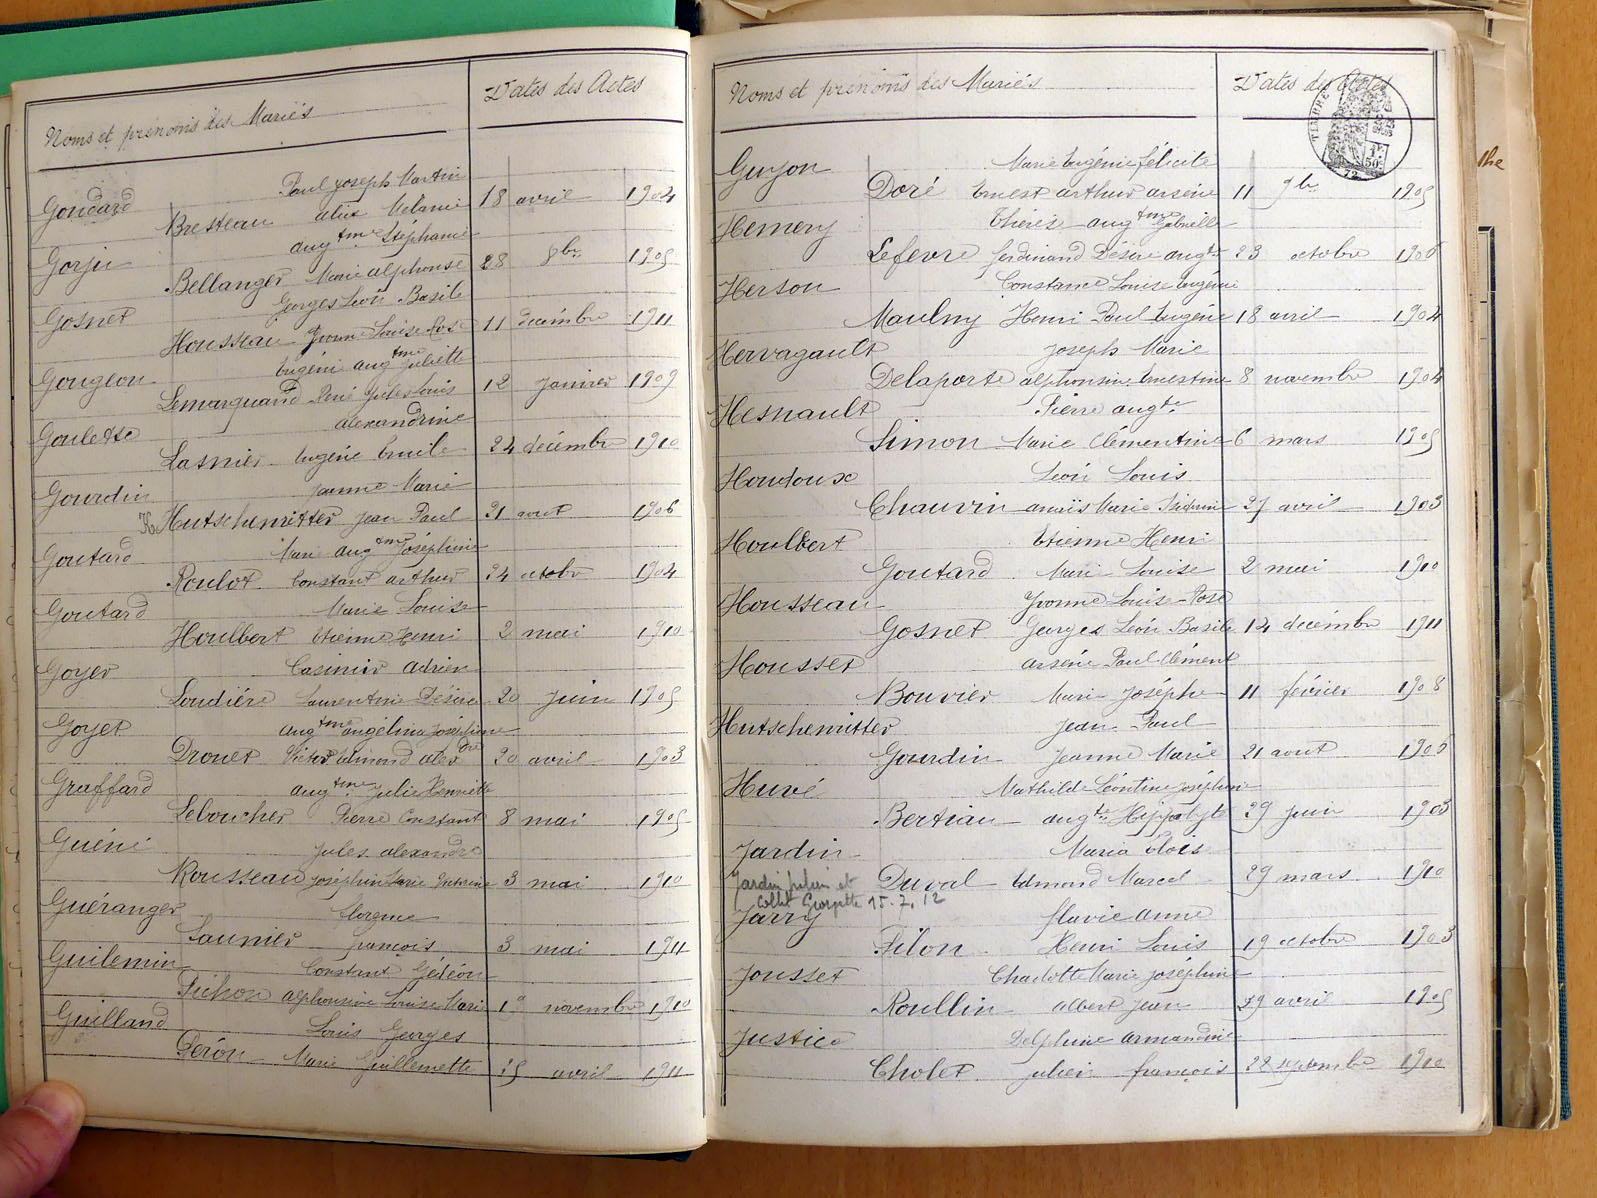 Noms et prénoms des Mariés Dates des Actes
Goudard Paul Joseph Martin
Bresteau alix Mélanie 18 avril 1904
Gorju augtine Stéphanie
Bellanger Marie alphonse 28 8bre 1905
Gosnet Georges Léon Basile
Housseau Yvonne Louise Rose 11 décembre 1911
Gougeon Eugénie augtine Juliette
Lemarquand René Jules Louis 12 Janvier 1909
Goulette alexandrine
Lasnier Eugène Emile 24 décembre 1910
Gourdin Jeanne Marie
Hutschemitter Jean Paul 21 aout 1906
Goutard Marie augtine Joséphine
Roulot Constant arthur 24 octobre 1904
Goutard Marie Louise
Houlbert Etienne Henri 2 mai 1910
Goyer Casimir adrien
Loudière Laurentine Désirée 20 Juin 1905
Goyet augtine angélina Joséphine
Drouet Victor Edmond alexdre 20 avril 1903
Graffard augtine Julie Henriette
Leboucher Pierre Constant 8 mai 1905
Guéné Jules alexandre
Rousseau Joséphine Marie 3 mai 1910
Guéranger florence
Saunier françois 3 mai 1911
Guilemin Constant Gédéon
Pichon alphonsine Louise Marie novembre 1910
Guilland Louis Georges
Peron Marie Guillemette 25 avril 1911
Noms et prénoms des Mariés Dates des Actes
Guyon Marie Eugénie félicité
Doré Ernest arthur arsène 11 9bre 1905
Hemery Thérèse augtine Gabrielle
Lefevre ferdinand Désiré augte 23 octobre 1906
Herson Constance Louise Eugénie
Maulny Henri Paul Eugène 18 avril 1904
Hervagault Joseph Marie
Delaporte alphonsine Ernestine 8 novembre 1904
Hesnault Pierre augte
Simon Marie Clémentine 6 mars 1905
Houdoux Léon Louis
Chauvin anaïs Marie 27 avril 1903
Houlbert Etienne Henri
Goutard Marie Louise 2 mai 1910
Housseau Yvonne Louise Rose
Gosnet Georges Léon Basile 14 décembre 1911
Housset arsène Paul Clément
Bouvier Marie Josèphe 11 février 1908
Hutschemitter Jean Paul
Gourdin Jeanne Marie 21 aout 1906
Huvé Mathilde Léontine Joséphine
Bertiau augte Hippolyte 29 juin 1903
Jardin Maria
Duval Edmond Marcel 29 mars 1910
Jardin Julien et
Collet Georgette 15.7.12
Jarry flavie anne
Pilon Henri Louis 19 octobre 1903
Jousset Charlotte Marie Joséphine
Roullin albert Jean 29 avril 1905
Justice Delphine armandine
Cholet Julien françois 22 septembre 1910